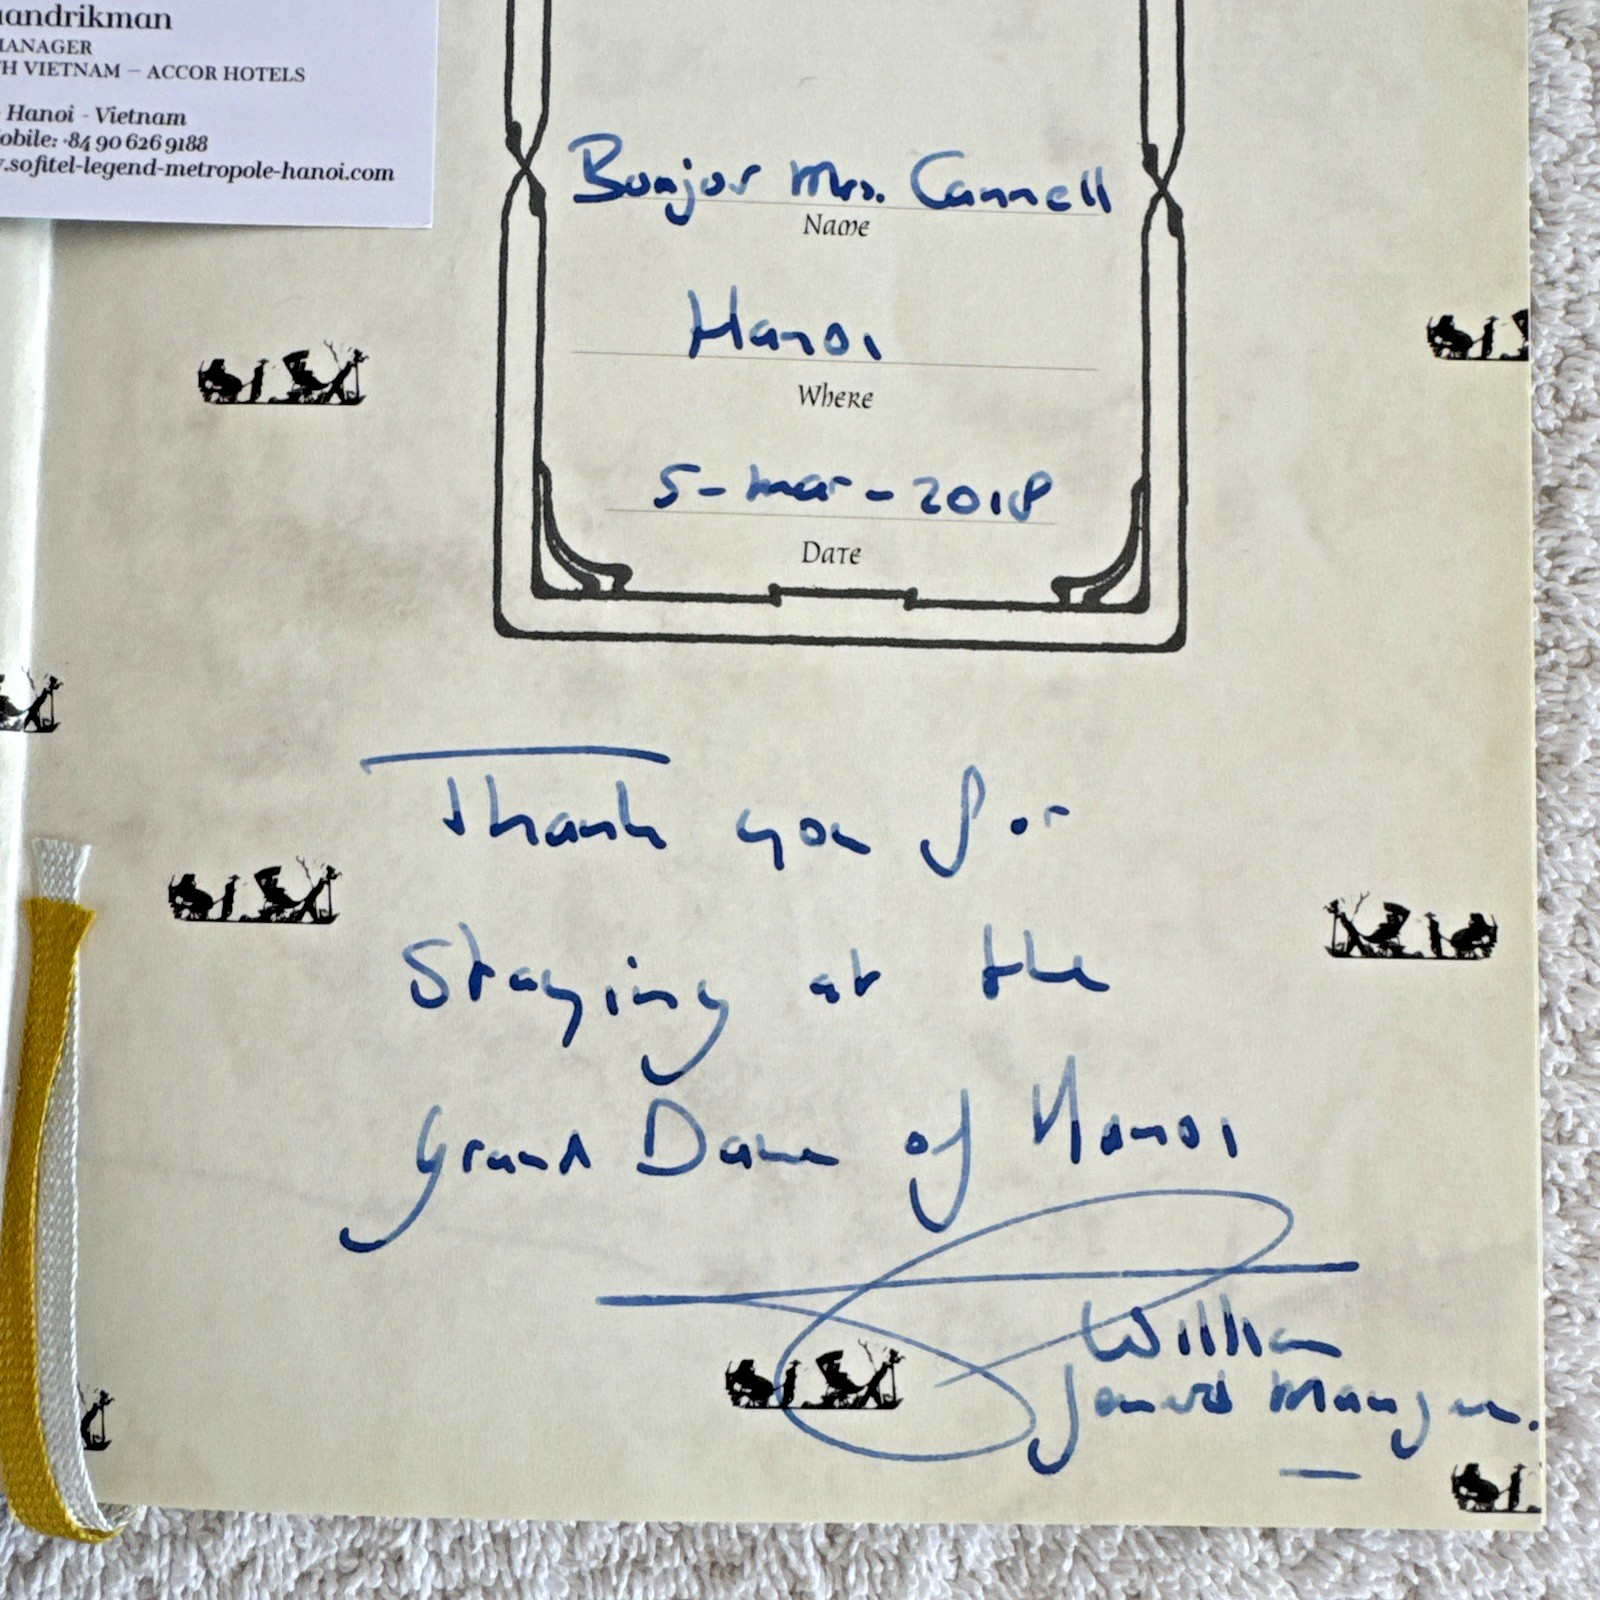 uandrikman
MANAGER
H VIETNAM – ACCOR HOTELS
Hanoi - Vietnam
obile: +84 90 626 9188
.sofitel-legend-metropole-hanoi.com
Bonjor Mrs. Cannell
Name
Hanoi
Where
5-mar-2018
Date
Thank you for
Staying at the
Grand Dame of Hanoi
William
General Manager.